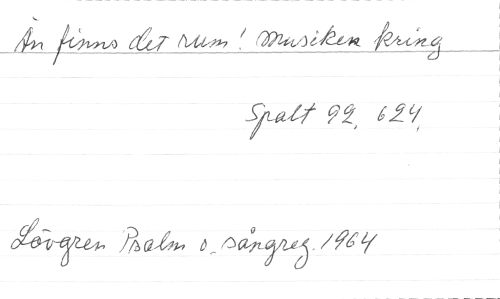 Än finns det rum! Musiken kring
Spalt 92, 624,
Lövgren Psalm o. sångreg. 1964